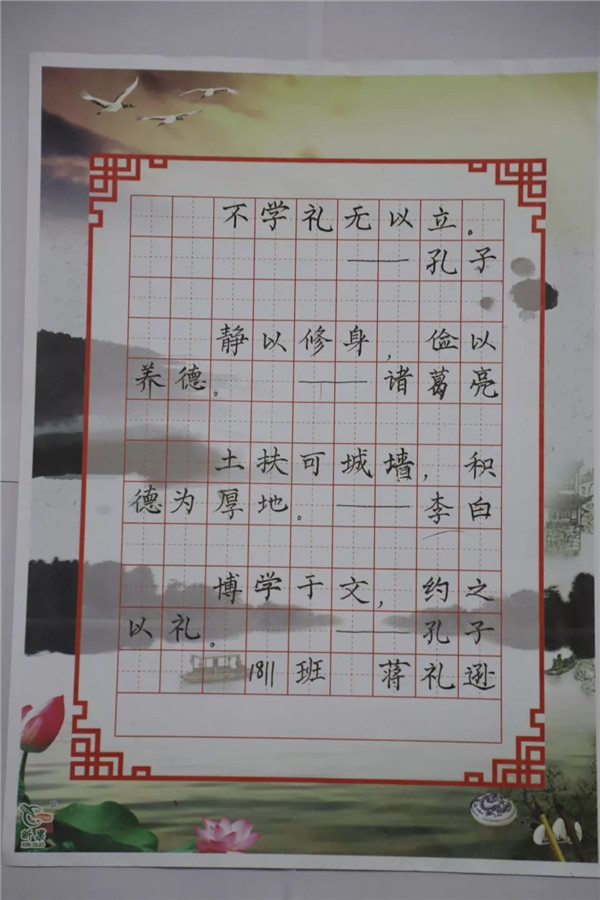 不学礼无以立。
——孔子
静以修身，俭以
养德。——诸葛亮
土扶可城墙，积
德为厚地。——李白
博学于文，约之
以礼。——孔子
1811班 蒋礼逊